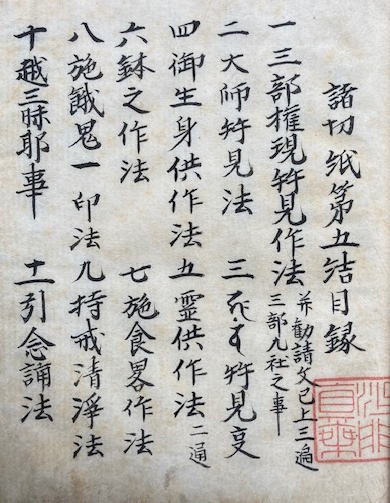 諸切紙第五結目録
一三部権現拝見作法
并勧請文已上三遍
三部九社之事
二大師拝見法 三 拝見事
四御生身供作法 五霊供作法 二通
六鉢之作法 七施食畧作法
八施餓鬼一印法 九持戒清淨法
十越三昧耶事 十一引念誦法